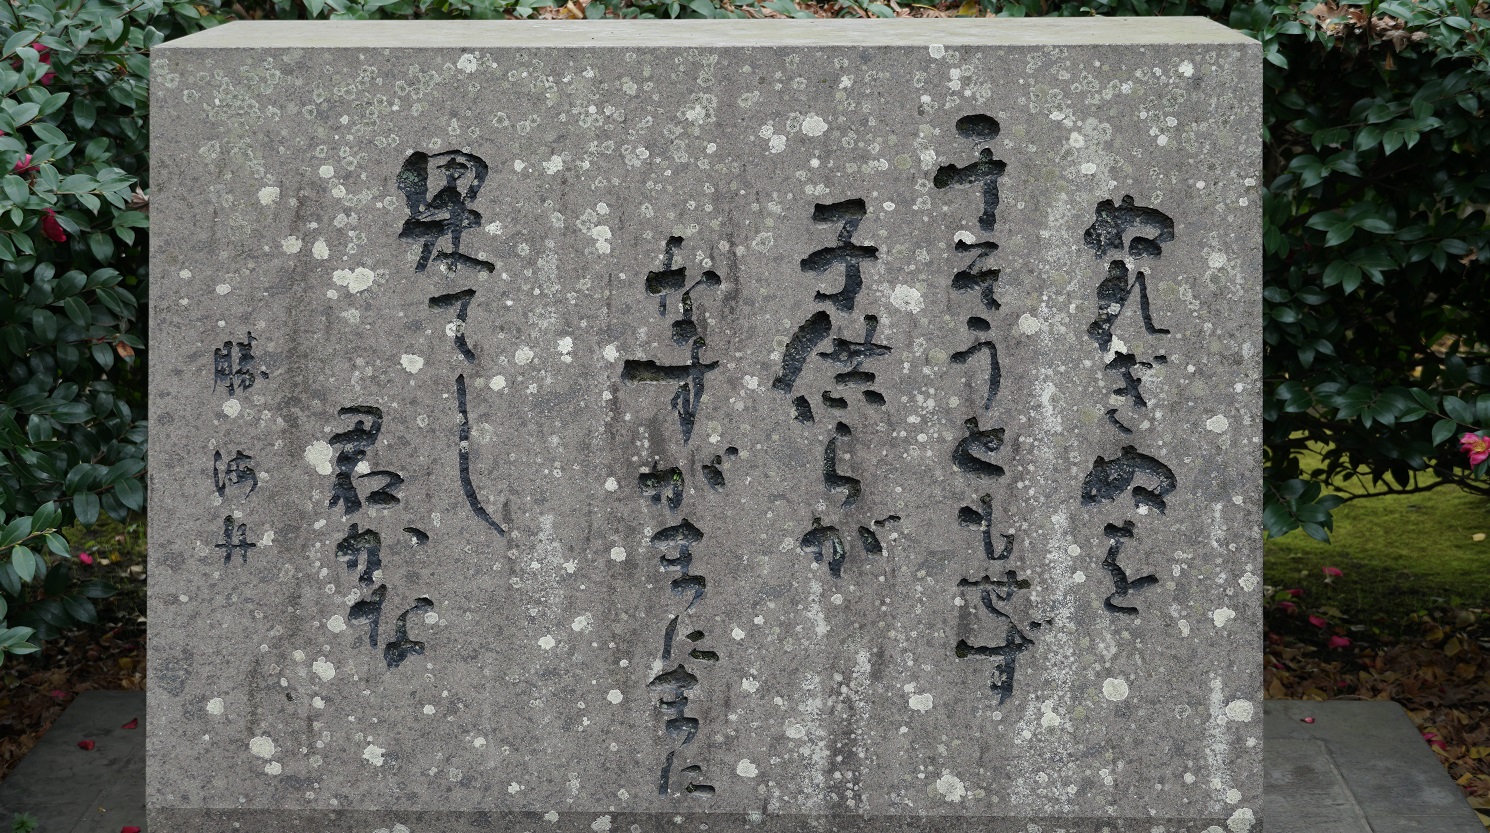 ぬれぎぬを
干そうともせず
子供らが
なすがまにまに
果てし
君かな
勝海舟